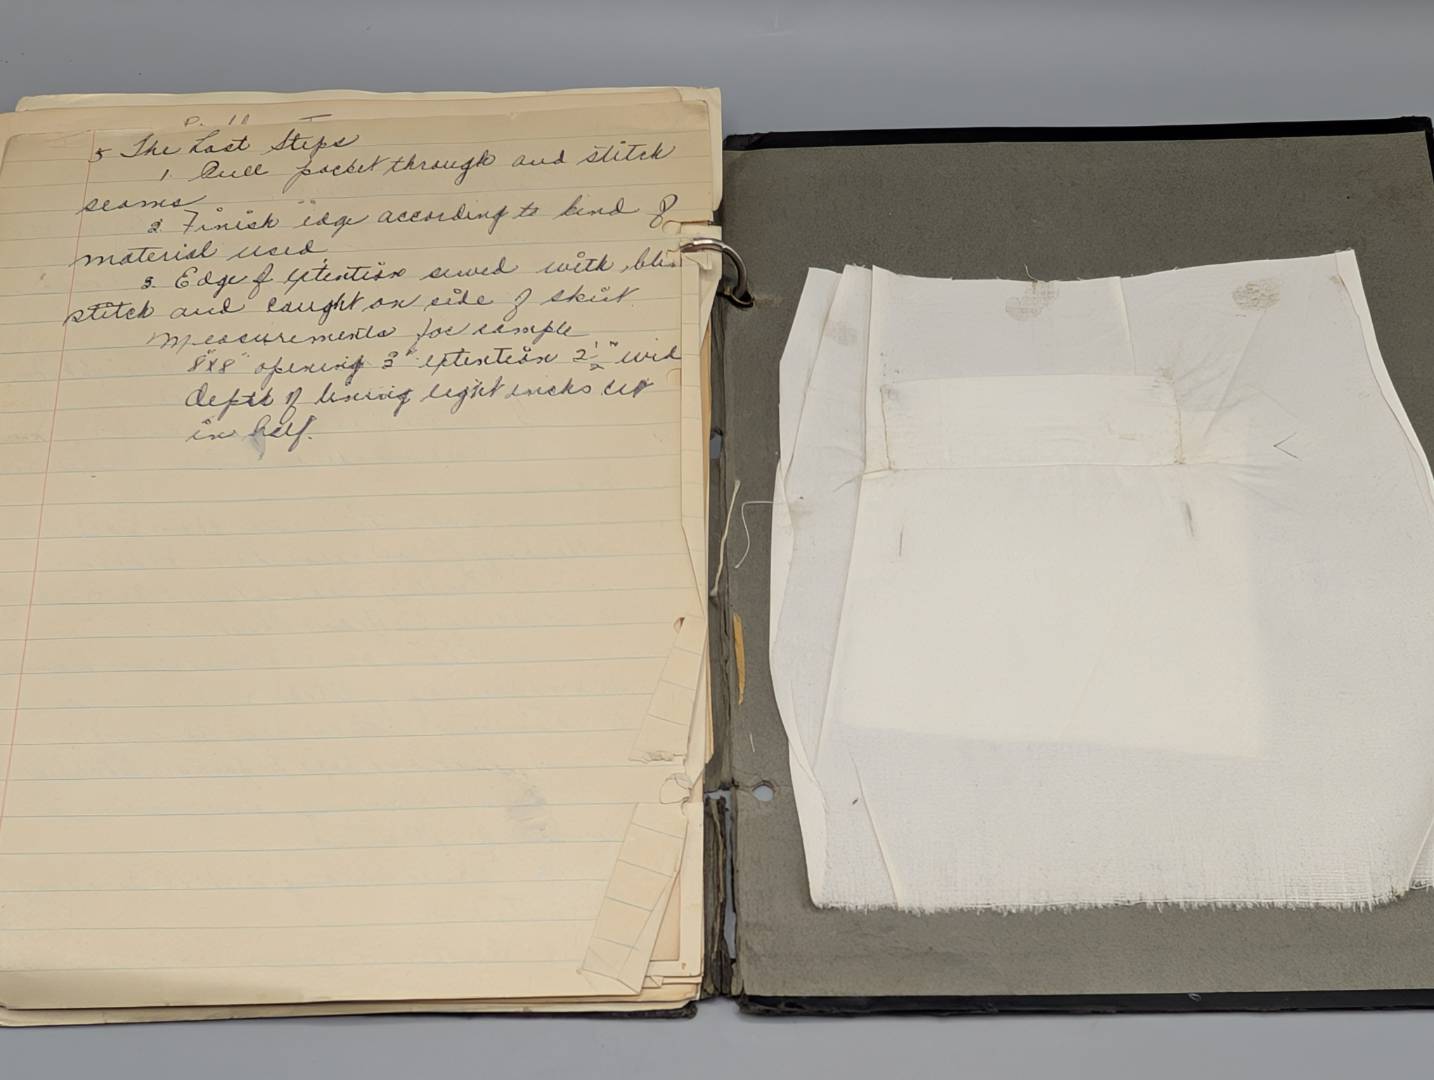 5 The Last Steps
1. Pull pocket through and stitch
seams
2. Finish edge according to kind of
material used.
3. Edge of extention sewed with blin
stitch and caught on side of skirt.
Measurements for sample
8"x8" opening 3" extention 2 1/2" wid
depth of lining eight inches cut
in half.